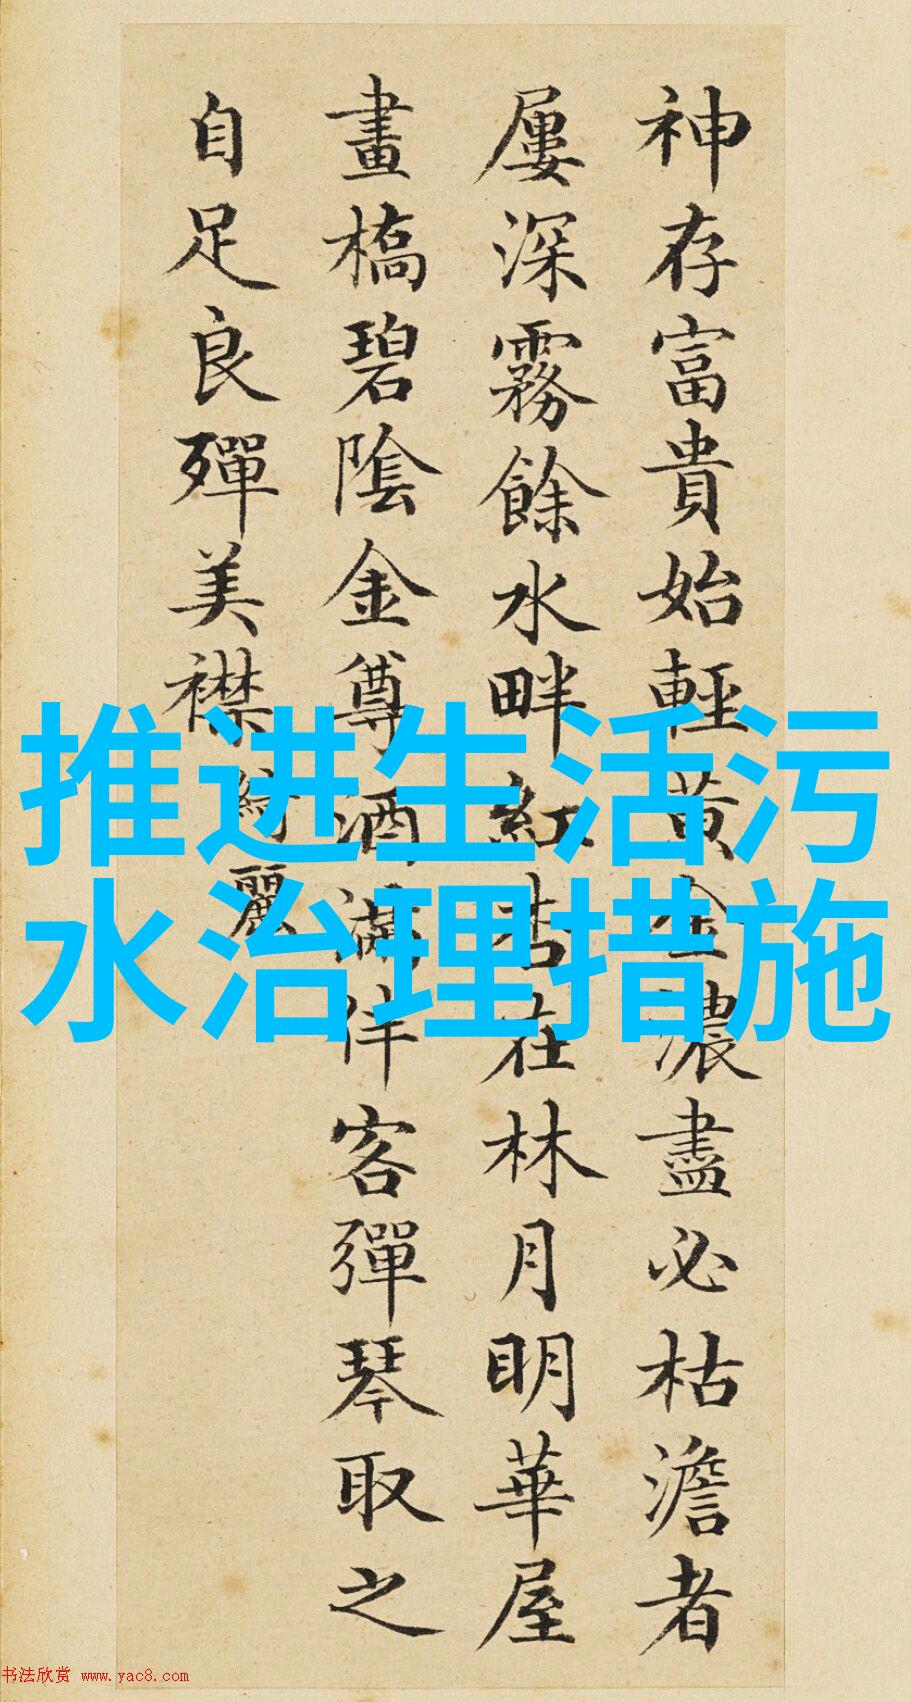 神存富貴始輕黄金濃盡必枯澹者
屢深霧餘水畔紅杏在林月明華屋
畫橋碧陰金尊酒滿伴客彈琴取之
自足良殫美襟綺麗
推进生活污
水治理措施
书法欣赏 www.yac8.com